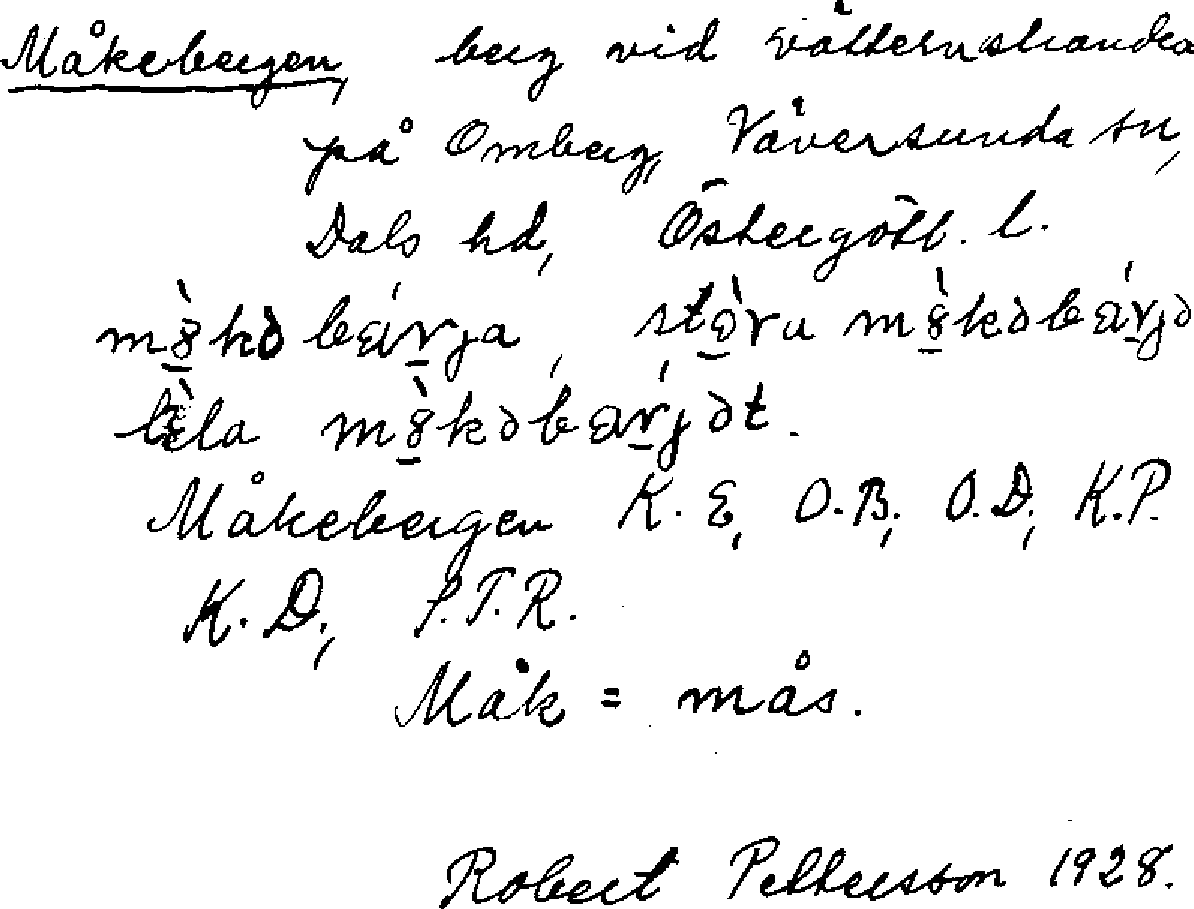 Måkebergen, berg vid Vätternstranden
på Omberg, Väversunda sn,
Dals hd, Östergötl. l.
mò̱kə bɛárja, stò̱ru mò̱kəbɛárjə
lìla mò̱kəbɛárjət.
Måkebergen K. E, O.B., O.D., K.P.
K.D., P.T.R.
Måk = mås.
Robert Pettersson 1928.